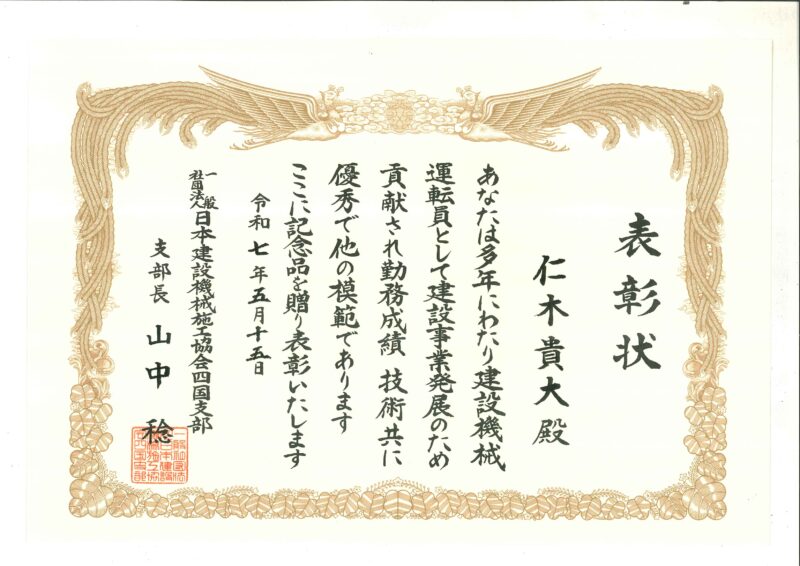 表彰状
仁木貴大殿
あなたは多年にわたり建設機械
運転員として建設事業発展のため
貢献され勤務成績 技術共に
優秀で他の模範であります
ここに記念品を贈り表彰いたします
令和七年五月十五日
一般社団法人日本建設機械施工協会四国支部
支部長 山中 稔